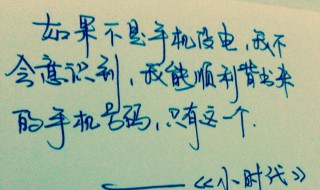 如果不是手机没电,我不
会意识到,我能顺利背出来
的手机号码,只有这一个.
——《小时代》